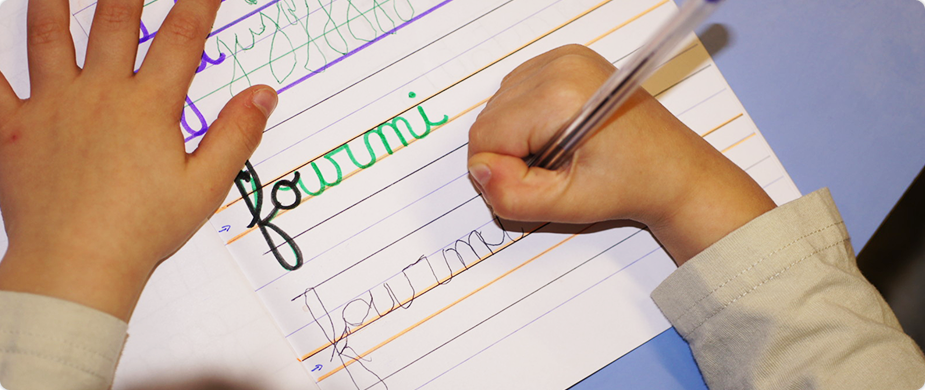 fourmi
fourmi